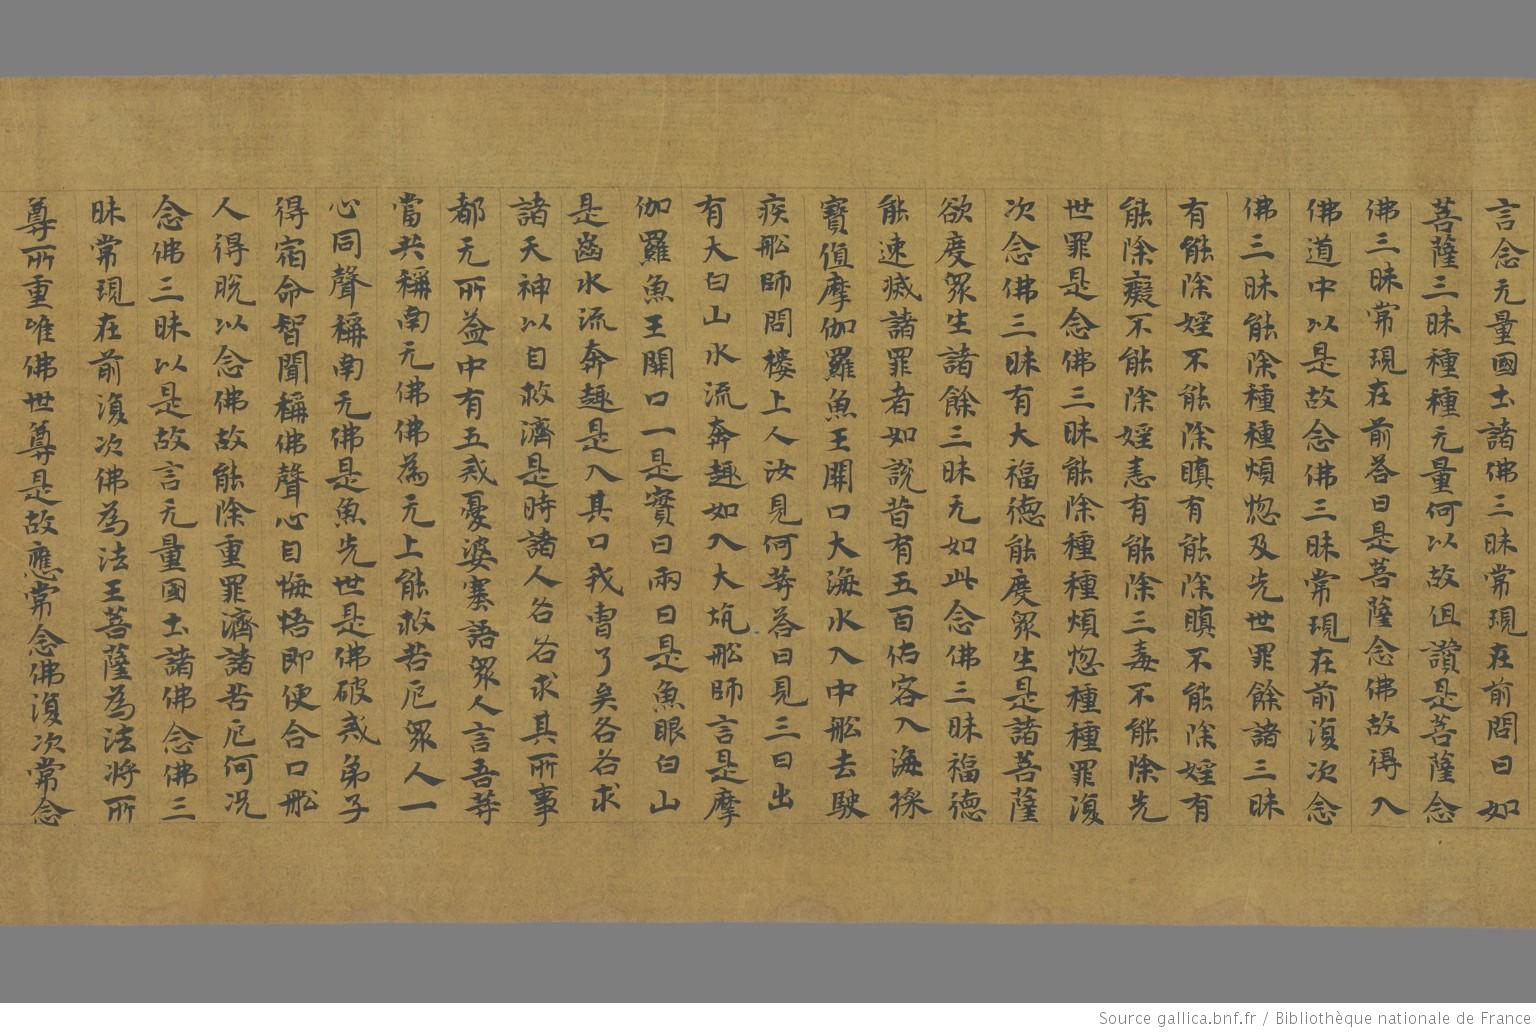 言念无量國土諸佛三昧常現在前問曰如
菩薩三昧種種无量何以故但讚是菩薩念
佛三昧常現在前荅曰是菩薩念佛故得入
佛道中以是故念佛三昧常現在前復次念
佛三昧能除種種煩惱及先世罪餘諸三昧
有能除婬不能除瞋有能除瞋不能除婬有
能除癡不能除婬恚有能除三毒不能除先
世罪是念佛三昧能除種種煩惱種種罪復
次念佛三昧有大福德能度眾生是諸菩薩
欲度眾生諸餘三昧无如此念佛三昧福德
能速滅諸罪者如說昔有五百估客入海採
寶值摩伽羅魚王開口大海水入中舩去駛
疾舩師問樓上人汝見何等荅曰見三日出
有大白山水流奔趣如入大坑舩師言是摩
伽羅魚王開口一是實日兩日是魚眼白山
是齒水流奔趣是入其口我曹了矣各各求
諸天神以自救濟是時諸人各各求其所事
都无所益中有五戒憂婆塞語眾人言吾等
當共稱南无佛佛為无上能救苦厄眾人一
心同聲稱南无佛是魚先世是佛破戒弟子
得宿命智聞稱佛聲心自悔悟即便合口舩
人得脫以念佛故能除重罪濟諸苦厄何況
念佛三昧以是故言无量國土諸佛念佛三
昧常現在前復次佛為法王菩薩為法將所
尊所重唯佛世尊是故應常念佛復次常念
Source gallica.bnf.fr / Bibliothèque nationale de France